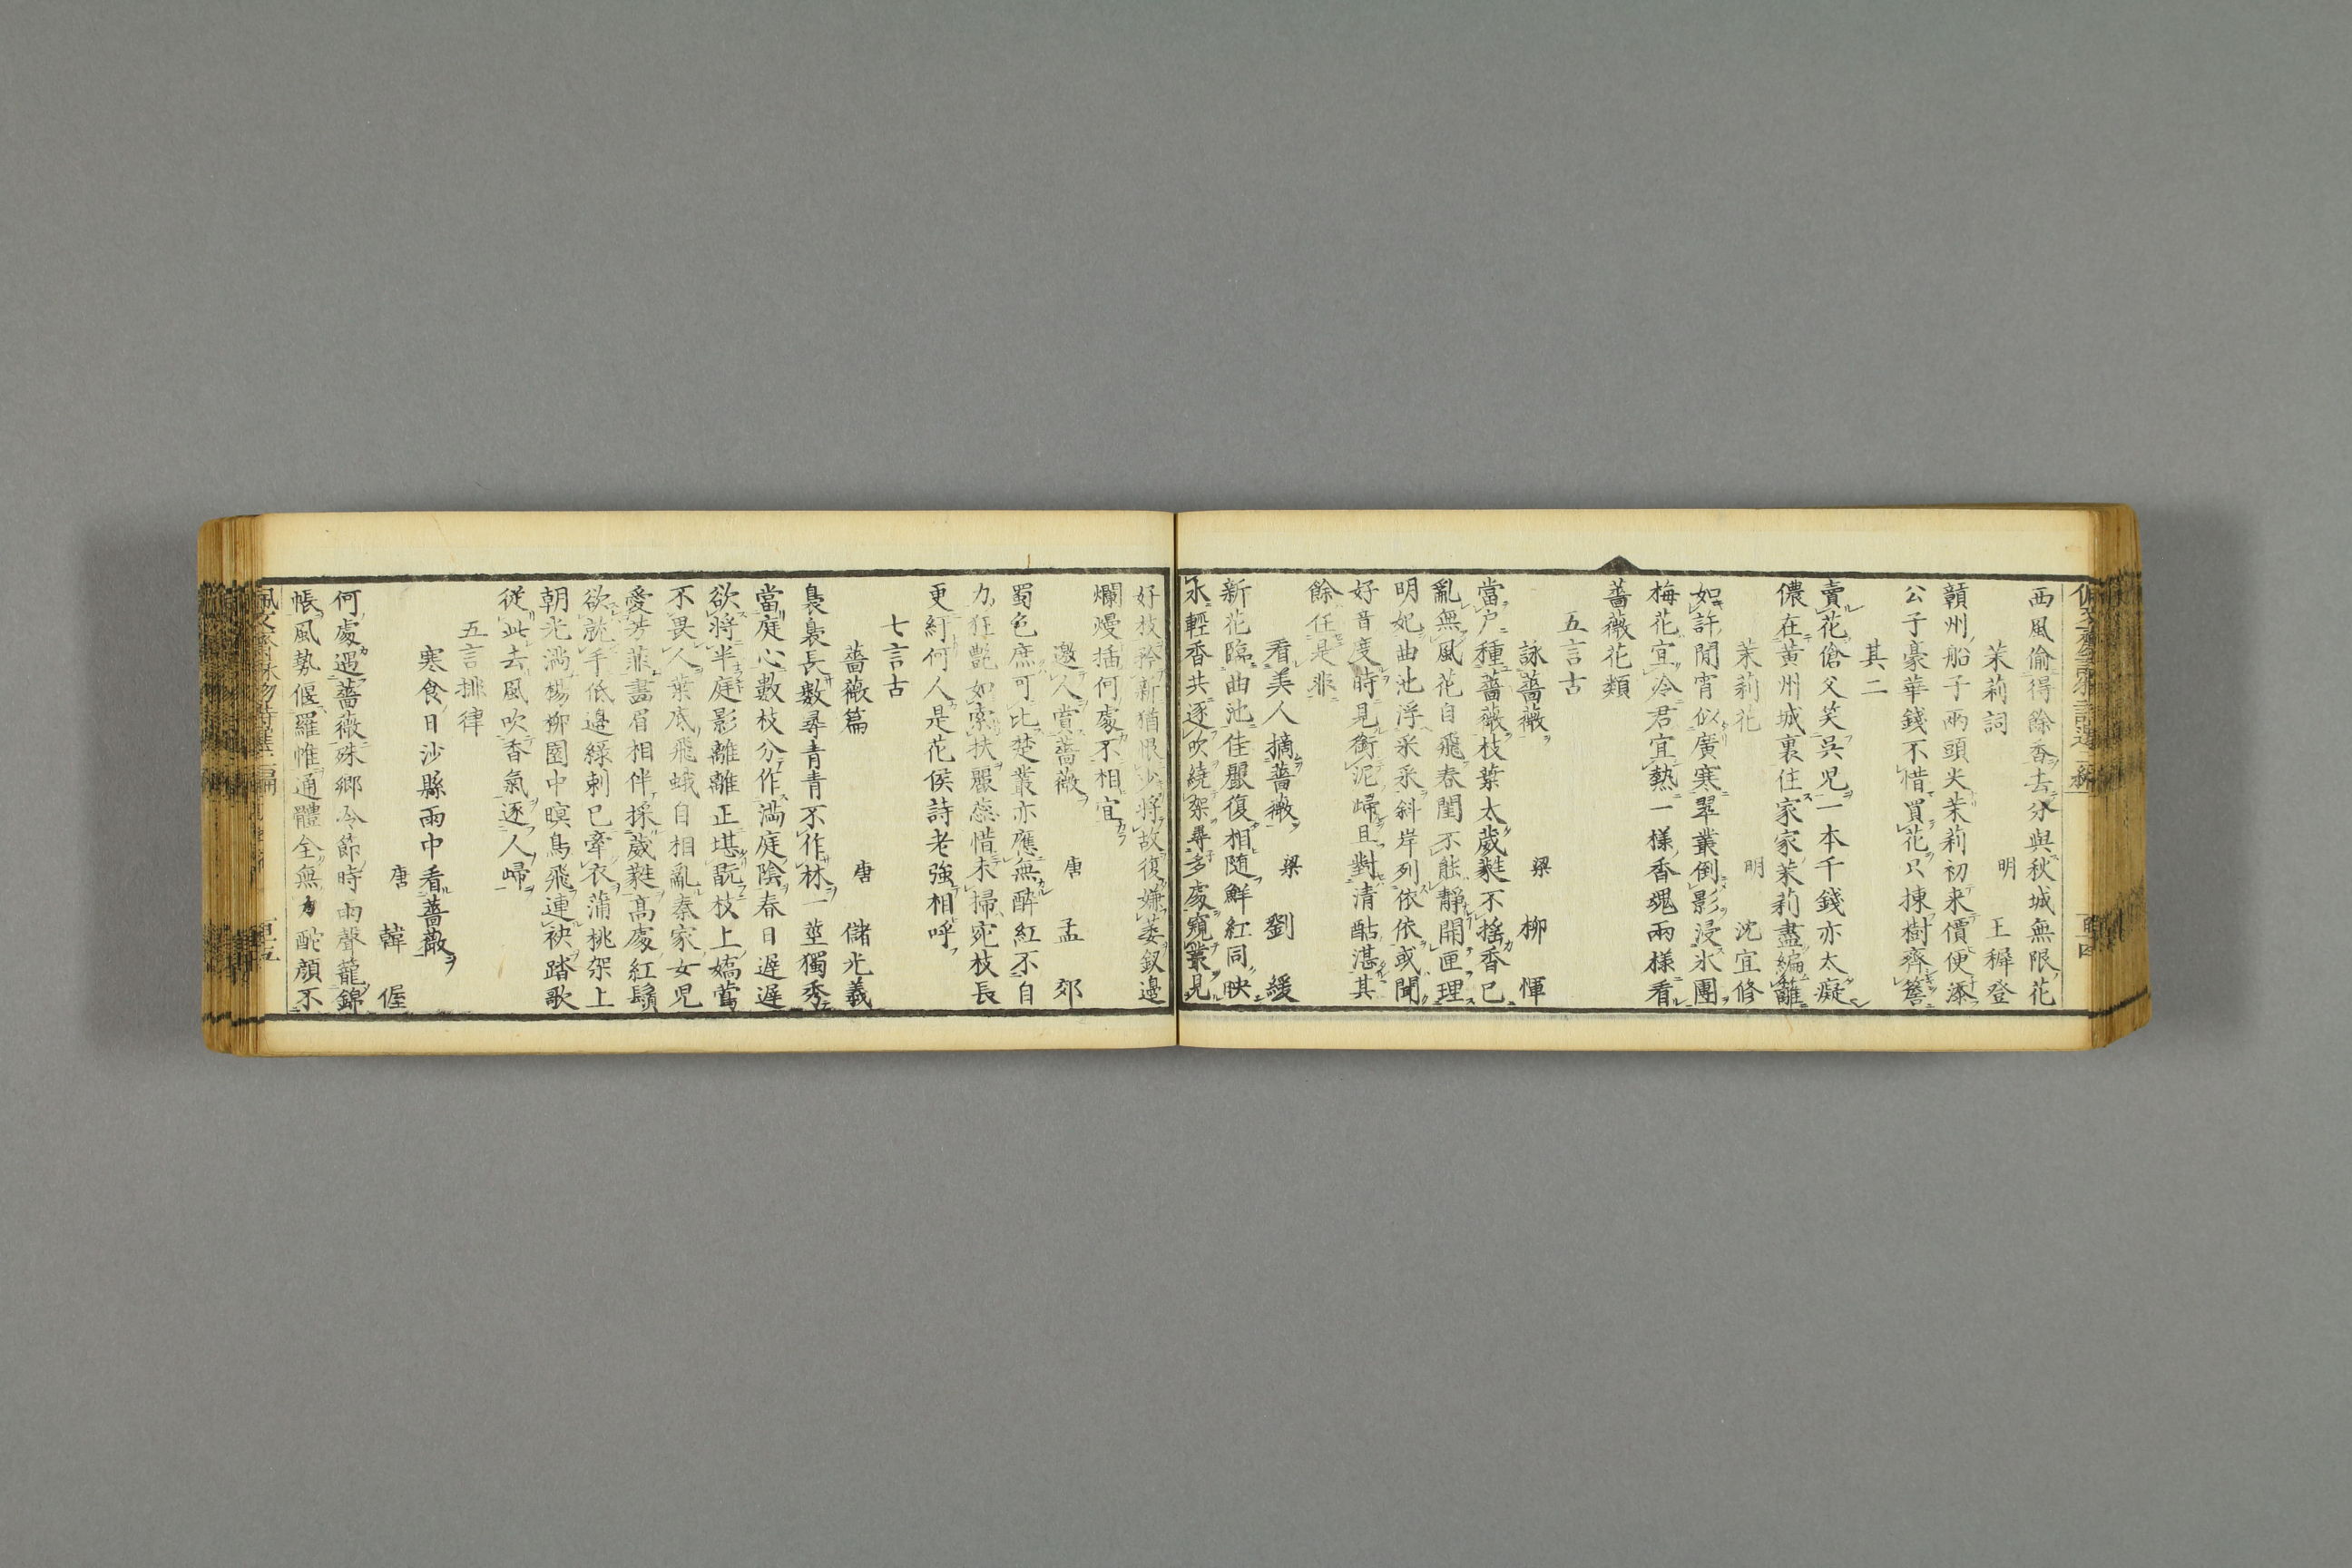 西風偷得餘香去分與秋城無限花
茉莉詞　明　王穉登
贛州船子兩頭尖茉莉初来價便添
公子豪華錢不惜買花只揀樹齊簷
其二
賣花傖父笑吳兒一本千錢亦太癡
儂在黃州城裏住家家茉莉盡編籬
茉莉花　明　沈宜修
如許閒宵似廣寒翠叢倒影浸氷團
梅花宜冷君宜熱一樣香魂兩樣看
薔薇花類
五言古
詠薔薇　梁　柳　惲
當户種薔薇枝葉太葳蕤不摇香已
亂無風花自飛春閨不能靜開匣理
明妃曲池浮采采斜岸列依依或聞
好音度時見銜泥歸且對清酤湛其
餘任是非
看美人摘薔薇　梁　劉　緩
新花臨曲池佳麗復相随鮮紅同映
水輕香共逐吹繞架尋多處窺叢見
好枝矜新猶恨少将故復嫌萎釵邊
爛熳插何處不相宜
邀人賞薔薇　唐　孟　郊
蜀色庶可比楚叢亦應無醉紅不自
力狂艷如索扶麗蕊惜未掃宛枝長
更紆何人是花侯詩老強相呼
七言古
薔薇篇　唐　儲光義
裊裊長數尋青青不作林一莖獨秀
當庭心數枝分作満庭陰春日遲遲
欲将半庭影離離正堪翫枝上嬌鶯
不畏人葉底飛蛾自相亂秦家女児
愛芳菲畫眉相伴採葳蕤高處紅鬚
欲就手低邉緑刺已牽衣蒲桃架上
朝光満楊柳園中暝鳥飛連袂踏歌
従此去風吹香氣逐人歸
五言排律
寒食日沙縣雨中看薔薇
唐　韓　偓
何處遇薔薇殊郷冷節時雨聲籠錦
帳風勢偃羅帷通體全無力酡顔不